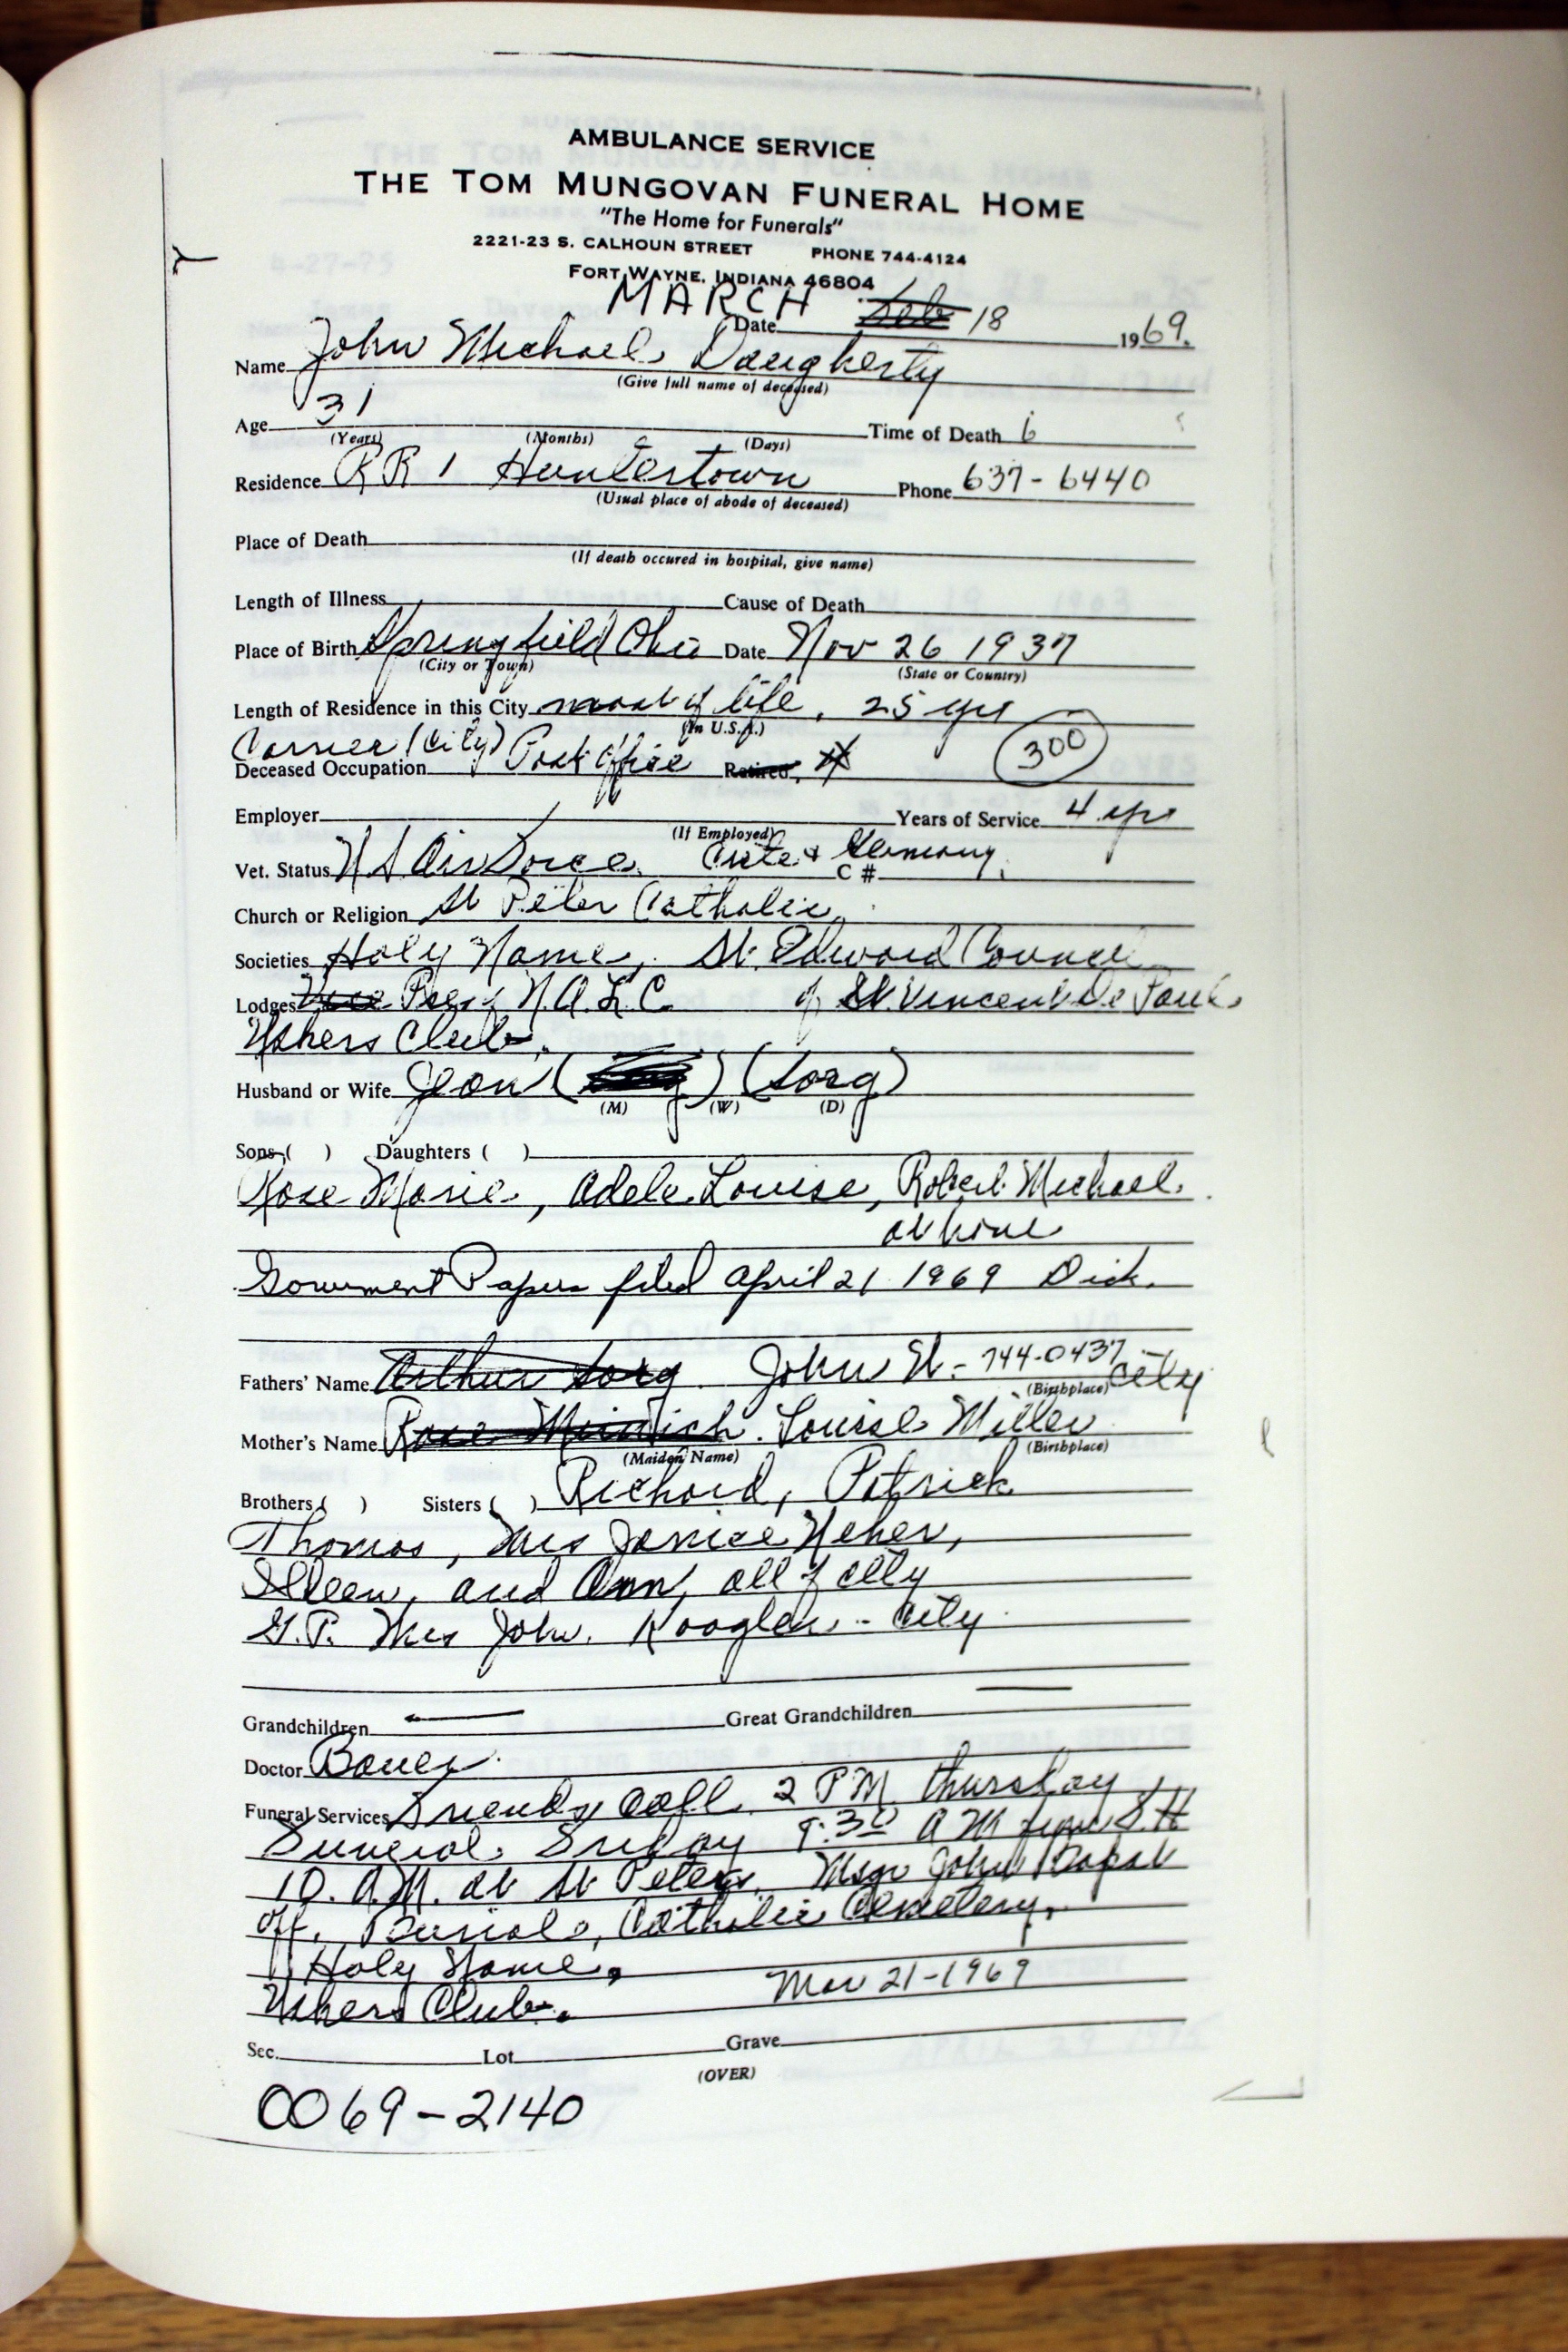 AMBULANCE SERVICE
THE TOM MUNGOVAN FUNERAL HOME
"The Home for Funerals"
2221-23 S. CALHOUN STREET PHONE 744-4124
FORT WAYNE, INDIANA 46804
MARCH
Date Feb 18 1969.
Name John Michael Daugherty
(Give full name of deceased)
Age 31 Time of Death 6
(Years) (Months) (Days)
Residence RR 1 Huntertown Phone 637-6440
(Usual place of abode of deceased)
Place of Death
(If death occured in hospital, give name)
Length of Illness Cause of Death
Place of Birth Springfield Ohio Date Nov 26 1937
(City or Town) (State or Country)
Length of Residence in this City most of life, 25 yrs
(In U.S.A.)
Carrier (City) 300
Deceased Occupation Post Office Retired
Employer Years of Service 4 yrs
(If Employed)
Vet. Status US Air Force. Crete & Germany.
C #
Church or Religion St Peter Catholic
Societies Holy Name, St. Edward Council
Lodges Vice Pres of N.A.L.C. of St. Vincent De Paul
Ushers Club.
Husband or Wife Jean (Sorg)
(M) (W) (D)
Sons ( ) Daughters ( )
Rose Marie, Adele Louise, Robert Michael.
at home
Government Papers filed April 21 1969 Dick.
Fathers' Name Arthur Sorg John W. - 744-0437 City
(Birthplace)
Mother's Name Rose Louise Miller
(Maiden Name) (Birthplace)
Brothers ( ) Sisters ( ) Richard, Patrick
Thomas, Mrs Janice Neher,
Illeen, and Ann, all of city
G.P. Mrs John. Koogler - City
Grandchildren Great Grandchildren
Doctor Bauer
Funeral Services Friends Call 2 PM Thursday,
Funeral Friday 9:30 AM from F.H
10. A.M. at St Peters, Msgr John
off. Burial, Catholic Cemetery.
Holy Name.
Ushers Club. Mar 21-1969
Sec. Lot Grave
(OVER)
0069-2140